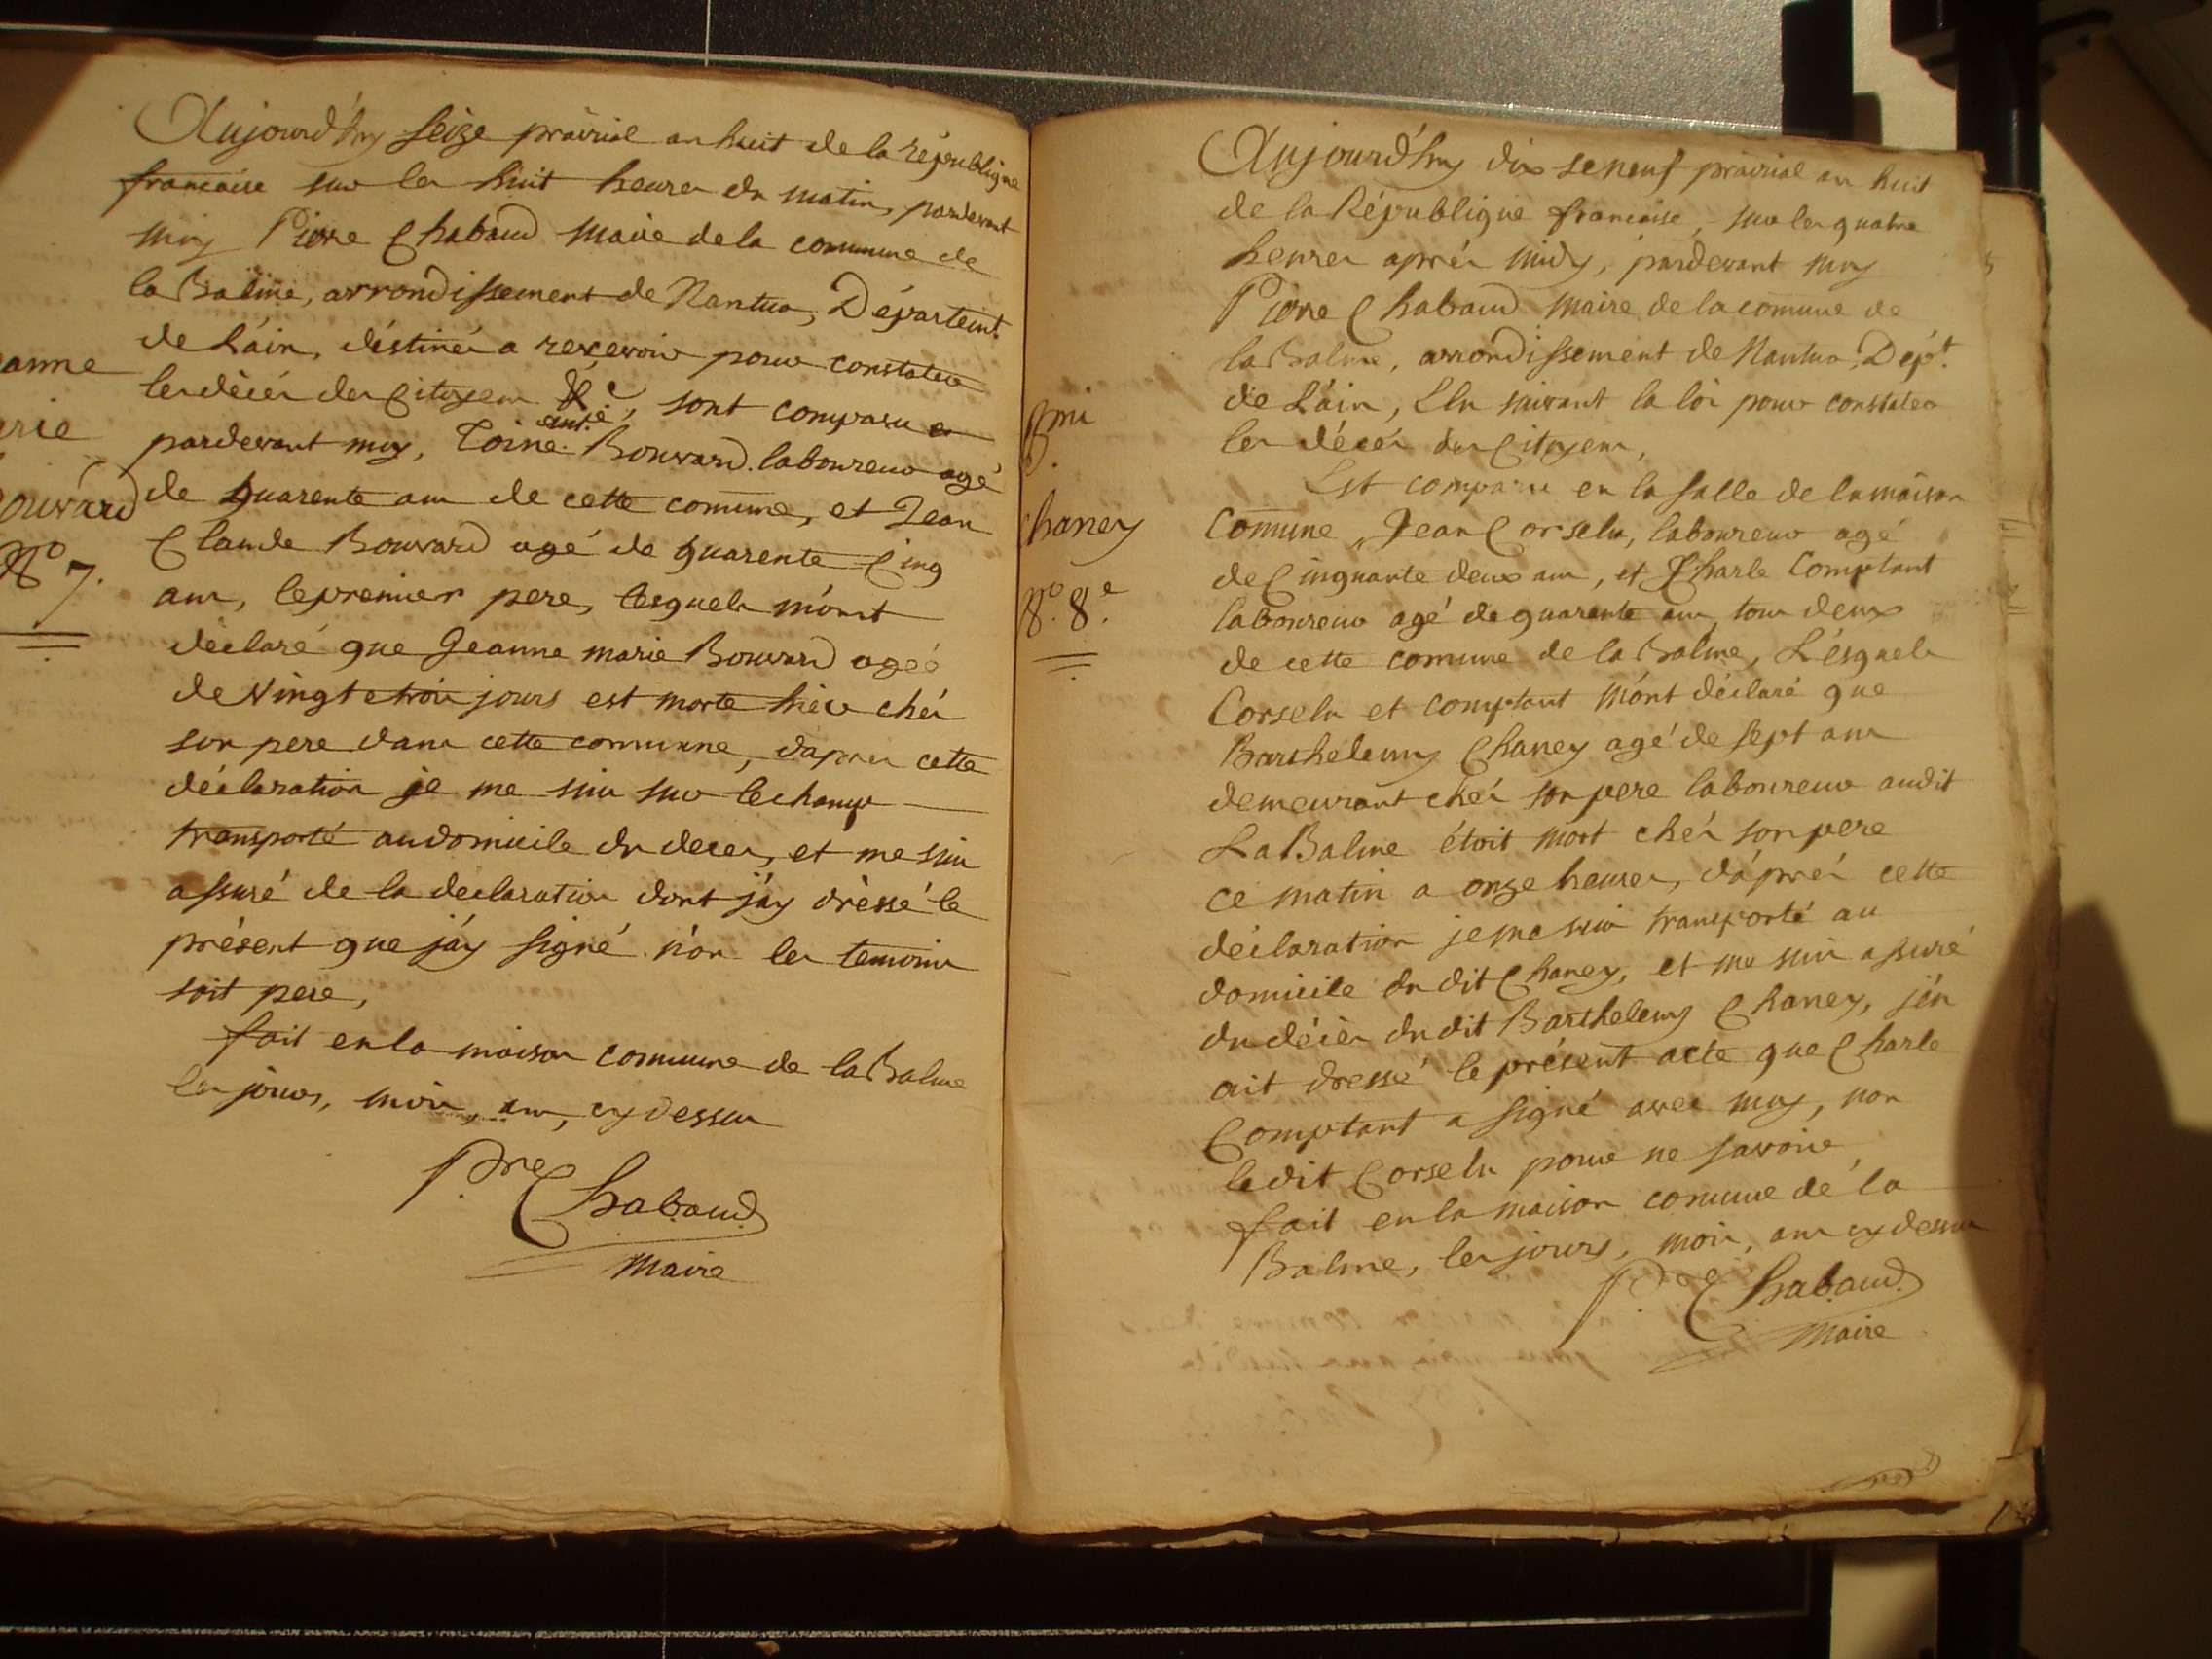 Aujourd'huy seize prairial an huit de la république
francaise sur les huit heures du matin, pardevant
moy Pierre Chabaud maire de la commune de
la Balme, arrondissement de Nantua, Départemt.
de L'áin, déstinés a recevoir pour constater
les décés des Citoyens &c, sont comparu en
pardevant moy, Toine Bouvard laboureur agé
de quarente ans de cette comune, et Jean
Claude Bouvard agé de quarente Cinq
ans, le premier pere, lesquels m'ont
déclaré que Jeanne marie Bouvard ageé
de Vingt et trois jours est morte hier chés
son pere dans cette commune, dapres cette
déclaration je me suis sur le champ
transporté au domicile du deces, et me suis
assuré de la déclaration dont j'ay dressé le
présent que j'ay signé non les temoins
soit pere,
fait en la maison commune de la Balme
les jours, mois, ans, cy dessus
Pre Chabaud
Maire
anne
arie
Bouvard
No 7.
Aujourd'huy dix seneuf prairial an huit
de la République francaise, sur les quatre
heures aprés midy, pardevant moy
Pierre Chabaud maire de la comune de
la Balme, arrondissement de Nantua, Dépt.
de L'áin, Elu suivant la loi pour constater
les décés des Citoyens,
Est comparu en la salle de la maison
Comune, Jean Corselu, laboureur agé
de Cinquante deux ans, et Charle Comptant
laboureur agé de quarente ans, tous deux
de cette comune de la Balme, Lésquels
Corselu et comptant m'ont déclaré que
Barthelemy Chaney agé de sept ans
demeurant chés son pere laboureur audit
La Balme étoit mort chés son pere
ce matin a onze heures, d'áprés cette
déclaration je me suis transporté au
domicile du dit Chaney, et me suis assuré
du décès du dit Barthelemy Chaney, j'én
ait dressé le présent acte que Charle
Comptant a signé avec moy, non
ledit Corselu pour ne savoire,
fait en la maison comune de la
Balme, les jours, mois, ans cy dessus
Pre Chabaud
Maire
Bmi
Chaney
No. 8.e